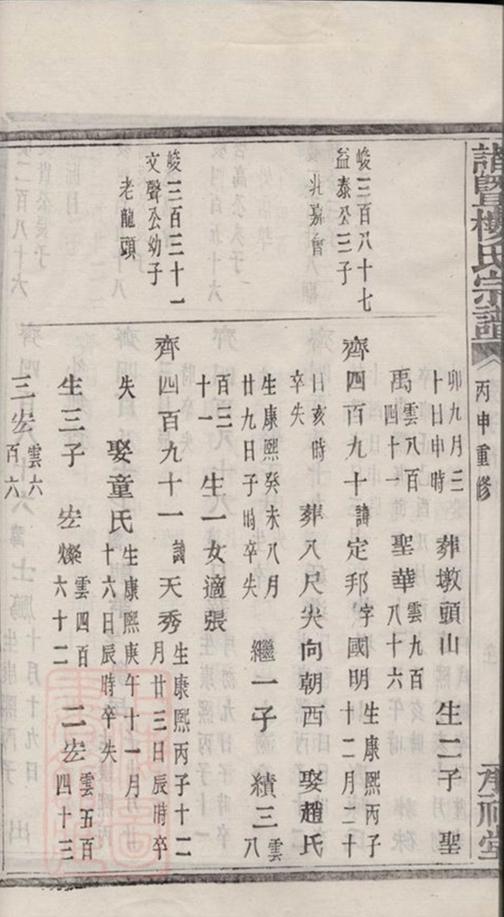 諸暨氏宗譜
丙申重修
承堂
峻三百八十七
益泰公三子
兆嘉會
峻三百三十一
文聲公幼子
老龍頭
卯九月三十日申時 葬墩頭山 生二子 聖
禹雲八百四十一 聖華雲九百八十六
齊四百九十 諱定邦字國明 生康熙丙子十二月二十
日亥時卒失 葬八尺尖向朝西 娶趙氏
生康熙癸未八月廿九日子時卒失 繼一子 績三雲八
百三十一 生一女適張
齊四百九十一 諱天秀 生康熙丙子十二月廿三日辰時卒
失 娶童氏 生康熙庚午十一月十六日辰時卒失
生三子 宏燦雲四百六十二 二宏雲五百四十三
三宏雲六百六